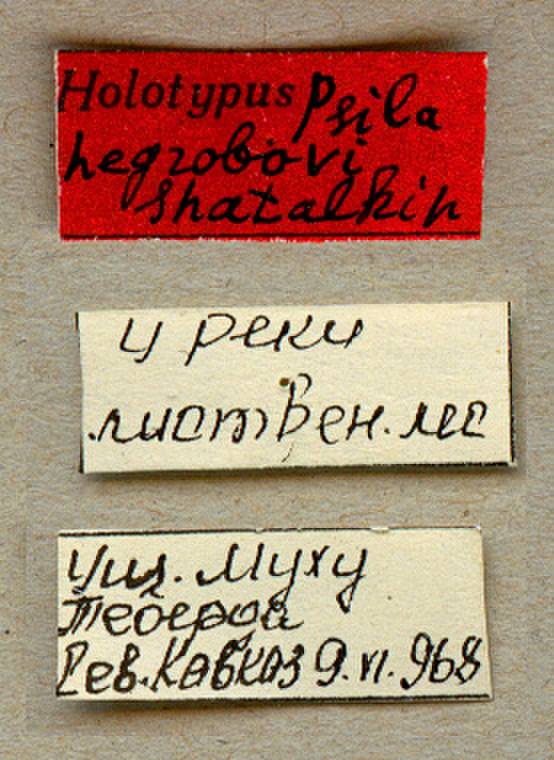 Holotypus Psila
negrobovi
Shatalkin
у реки
листвен. лес
ущ. Муху
Теберда
Сев. Кавказ 9.VI.968